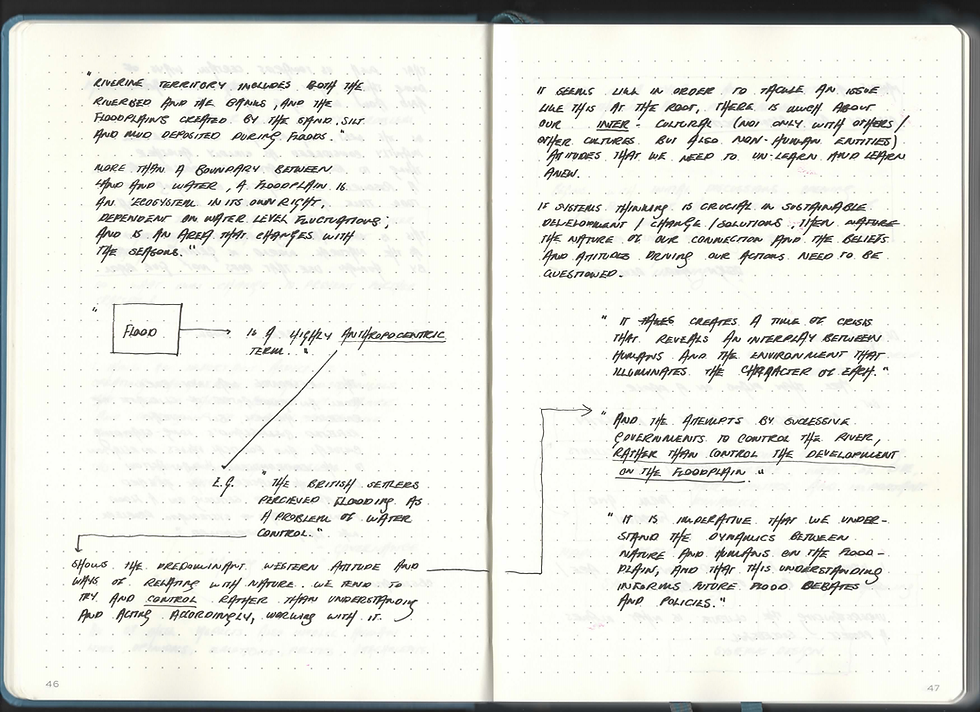 "RIVERINE TERRITORY INCLUDES BOTH THE
RIVERBED AND THE BANKS, AND THE
FLOODPLAINS CREATED BY THE SAND, SILT
AND MUD DEPOSITED DURING FLOODS."
MORE THAN A BOUNDARY BETWEEN
LAND AND WATER, A FLOODPLAIN IS
AN 'ECOSYSTEM IN ITS OWN RIGHT,
DEPENDENT ON WATER LEVEL FLUCTUATIONS,'
AND IS AN AREA THAT CHANGES WITH
THE SEASONS."
" FLOOD → IS A HIGHLY ANTHROPOCENTRIC
TERM."
E.G. "THE BRITISH SETTLERS
PERCIEVED FLOODING AS
A PROBLEM OF WATER
CONTROL."
SHOWS THE PREDOMINANT WESTERN ATTITUDE AND
WAYS OF RELATING WITH NATURE. WE TEND TO
TRY AND CONTROL RATHER THAN UNDERSTANDING
AND ACTING ACCORDINGLY, WORKING WITH IT.
46
IT SEEMS LIKE IN ORDER TO TACKLE AN ISSUE
LIKE THIS AT THE ROOT, THERE IS MUCH ABOUT
OUR INTER-CULTURAL (NOT ONLY WITH OTHERS/
OTHER CULTURES BUT ALSO NON-HUMAN ENTITIES)
ATTITUDES THAT WE NEED TO UN-LEARN AND LEARN
ANEW.
IF SYSTEMS THINKING IS CRUCIAL IN SUSTAINABLE
DEVELOPMENT / CHANGE / SOLUTIONS, THEN NATURE
THE NATURE OF OUR CONNECTION AND THE BELIEFS
AND ATTITUDES DRIVING OUR ACTIONS NEED TO BE
QUESTIONED.
"IT TAKES CREATES A TIME OF CRISIS
THAT REVEALS AN INTERPLAY BETWEEN
HUMANS AND THE ENVIRONMENT THAT
ILLUMINATES THE CHARACTER OF EACH."
"AND THE ATTEMPTS BY SUCCESSIVE
GOVERNMENTS TO CONTROL THE RIVER,
RATHER THAN CONTROL THE DEVELOPMENT
ON THE FLOODPLAIN."
"IT IS IMPERATIVE THAT WE UNDER-
STAND THE DYNAMICS BETWEEN
NATURE AND HUMANS ON THE FLOOD-
PLAIN, AND THAT THIS UNDERSTANDING
INFORMS FUTURE FLOOD DEBATES
AND POLICIES."
47